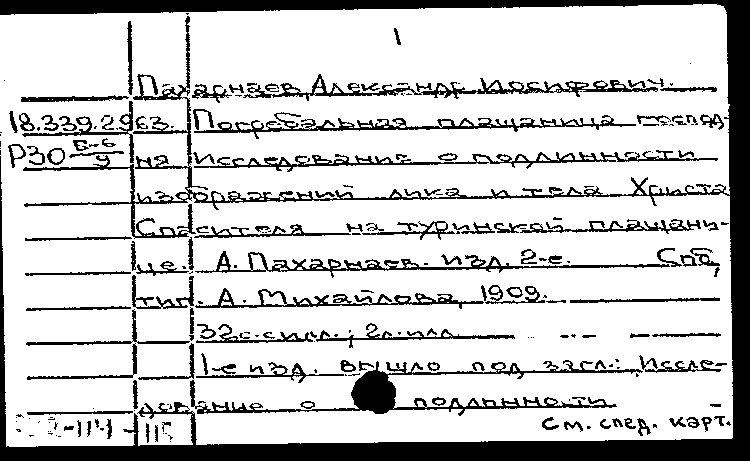 1
Пахарнаев, Александр Иосифович.
18.339.2963. Погребальная плащаница господ-
Р30 Б-6/9 ня исследование о подлинности
изображений лика и тела Христа
Спасителя на туринской плащани-
це. А. Пахарнаев. изд. 2-е. Спб,
тип. А. Михайлова, 1909.
32с. с илл.; 2л. илл
1-е изд. вышло под загл.: Иссле-
дование о подлинности
-114-115 См. след. карт.